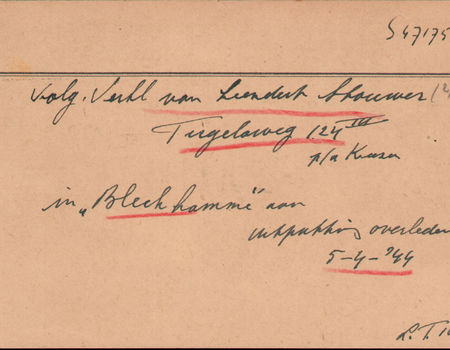 S 47175
volg. Verkl van Leendert Schouwer
Tugelaweg 124 III
p/a
in „Blechhamme" aan
uitputting overleden
5-4-'44